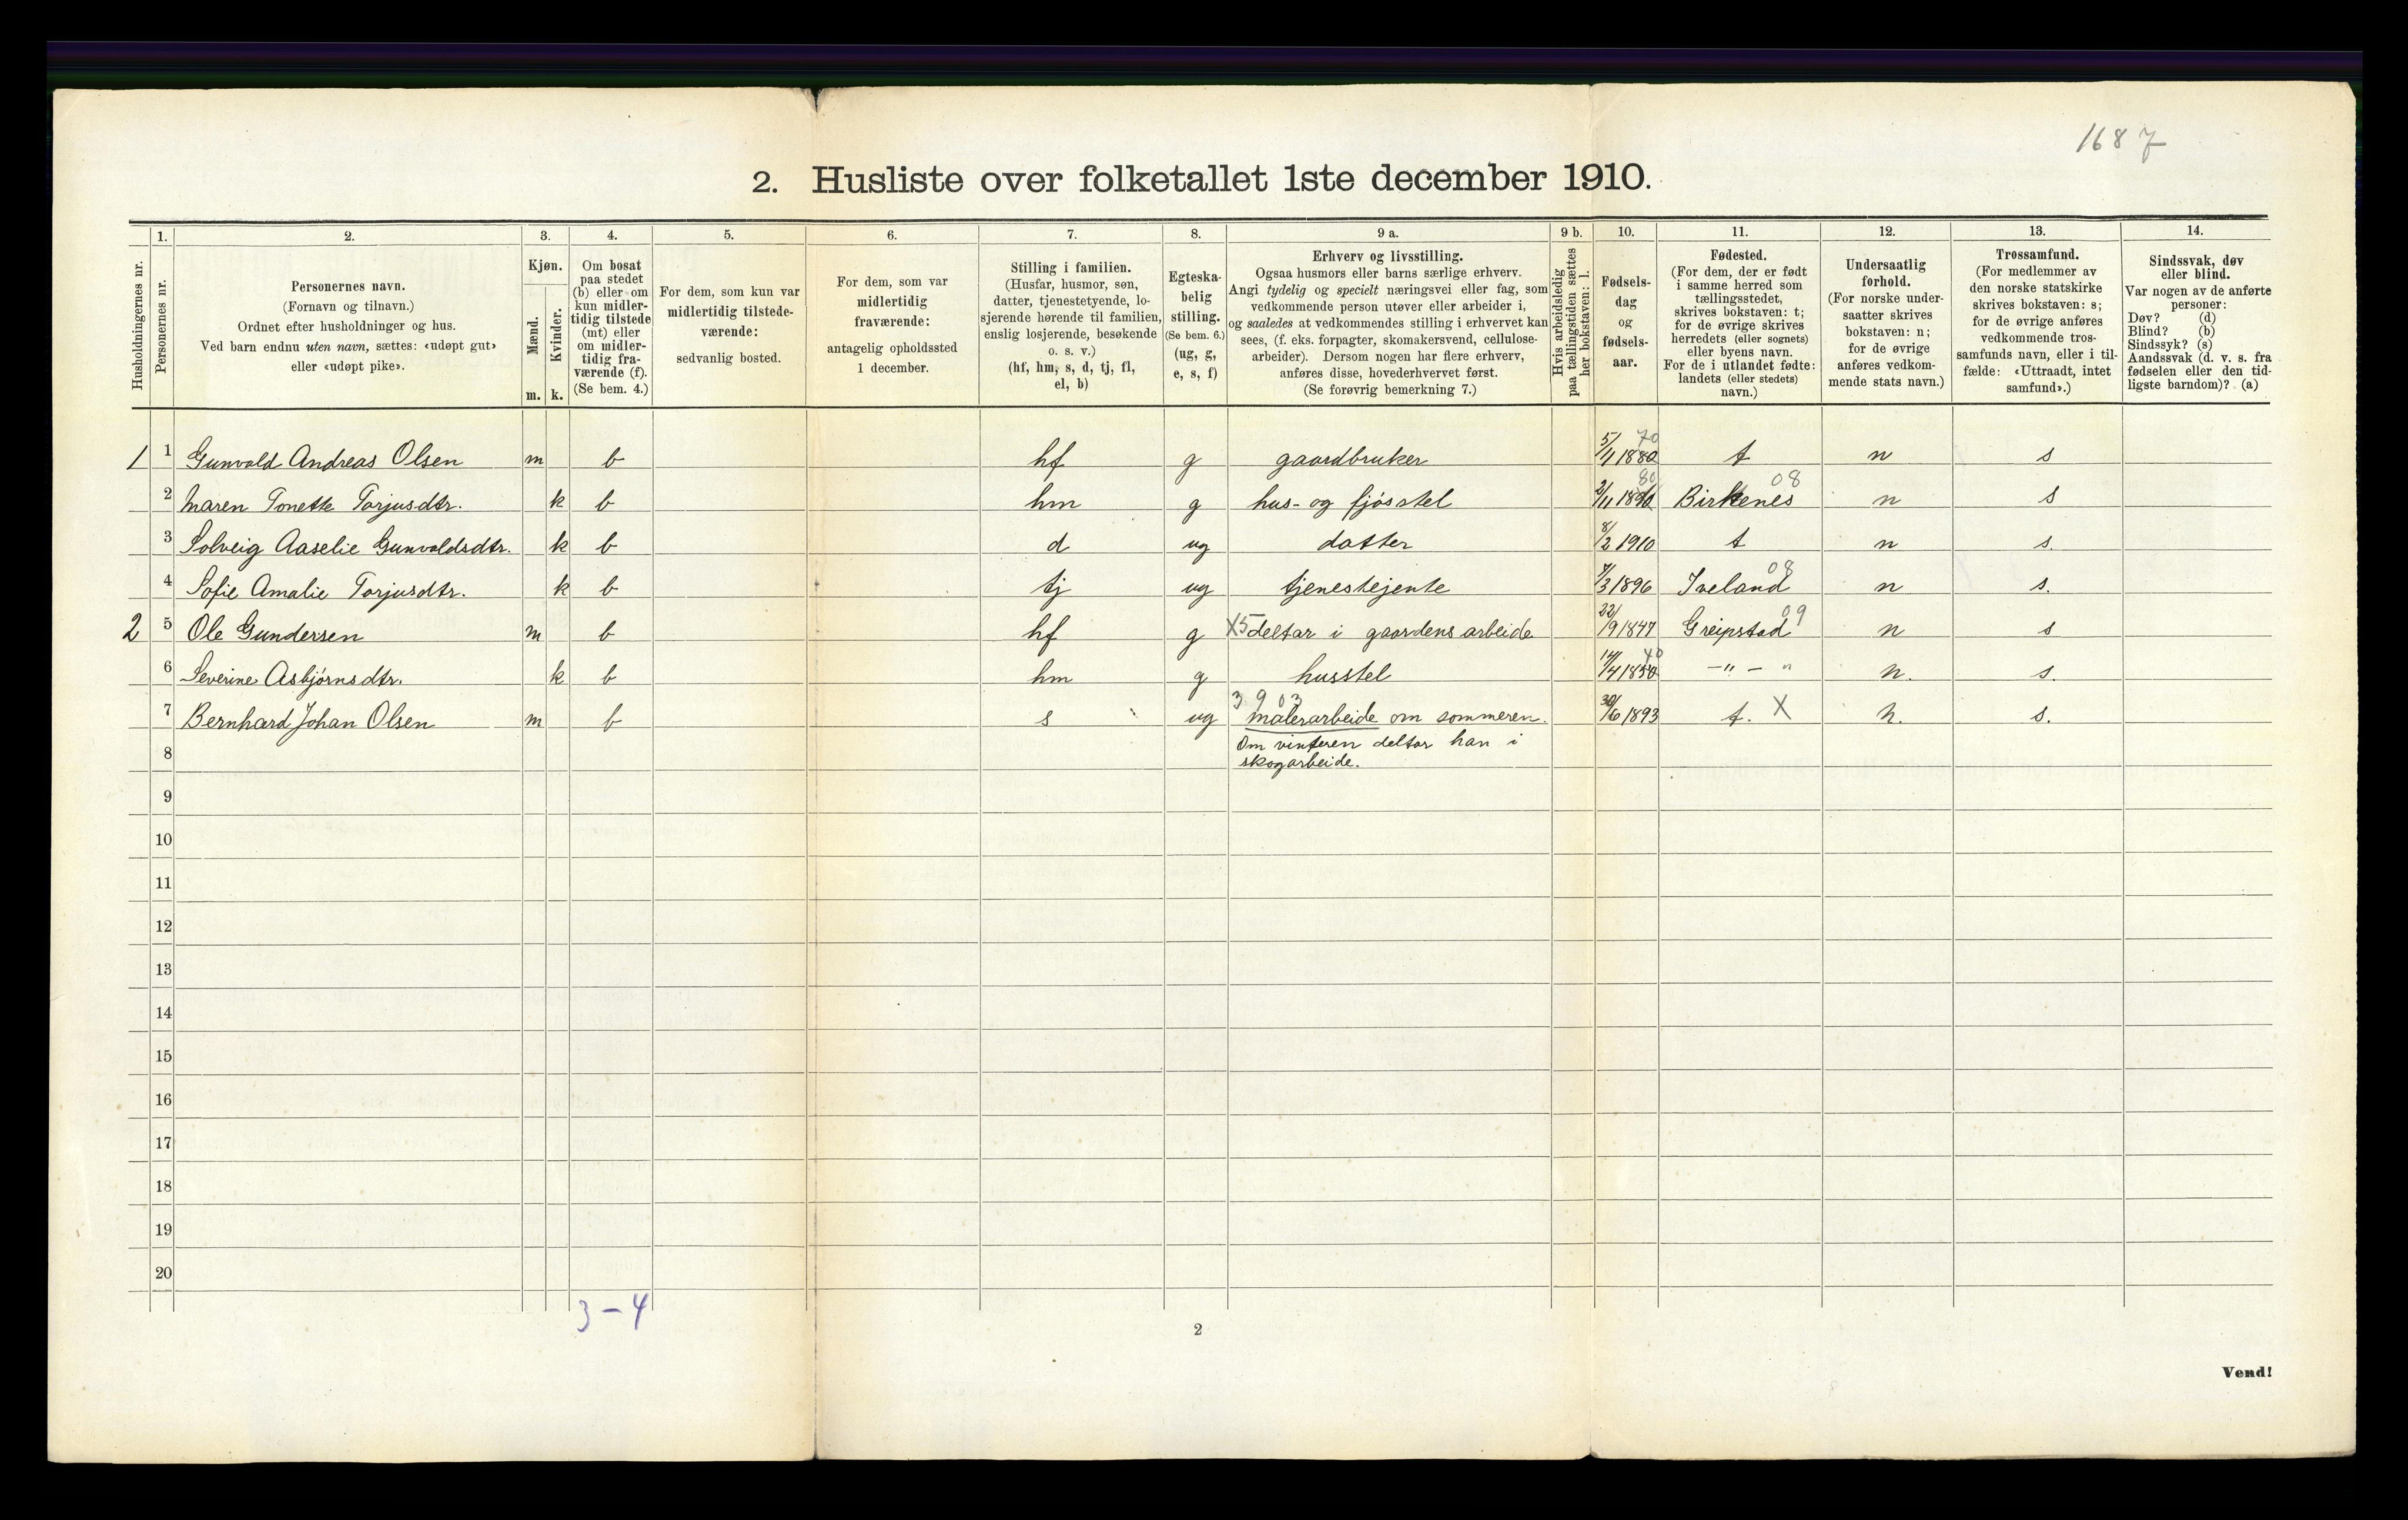 1687
2. Husliste over folketallet 1ste december 1910.
Husholdningernes nr.
1.
Personernes nr.
2.
Personernes navn.
(Fornavn og tilnavn.)
Ordnet efter husholdninger og hus.
Ved barn endnu uten navn, sættes: «udøpt gut»
eller «udøpt pike».
3.
Kjøn.
Mænd.
Kvinder.
m. k.
4.
Om bosat
paa stedet
(b) eller om
kun midler-
tidig tilstede
(mt) eller
om midler-
tidig fra-
værende (f).
(Se bem. 4.)
5.
For dem, som kun var
midlertidig tilstede-
værende:
sedvanlig bosted.
6.
For dem, som var
midlertidig
fraværende:
antagelig opholdssted
1 december.
7.
Stilling i familien.
(Husfar, husmor, søn,
datter, tjenestetyende, lo-
sjerende hørende til familien,
enslig losjerende, besøkende
o. s. v.)
(hf, hm, s, d, tj, fl,
el, b)
8.
Egteska-
belig
stilling.
(Se bem. 6.)
(ug, g,
e, s, f)
9 a.
Erhverv og livsstilling.
Ogsaa husmors eller barns særlige erhverv.
Angi tydelig og specielt næringsvei eller fag, som
vedkommende person utøver eller arbeider i,
og saaledes at vedkommendes stilling i erhvervet kan
sees, (f. eks. forpagter, skomakersvend, cellulose-
arbeider). Dersom nogen har flere erhverv,
anføres disse, hovederhvervet først.
(Se forøvrig bemerkning 7.)
9 b.
Hvis arbeidsledig
paa tællingstiden sættes
her bokstaven: l.
10.
Fødsels-
dag
og
fødsels-
aar.
11.
Fødested.
(For dem, der er født
i samme herred som
tællingsstedet,
skrives bokstaven: t;
for de øvrige skrives
herredets (eller sognets)
eller byens navn.
For de i utlandet fødte:
landets (eller stedets)
navn.)
12.
Undersaatlig
forhold.
(For norske under-
saatter skrives
bokstaven: n;
for de øvrige
anføres vedkom-
mende stats navn.)
13.
Trossamfund.
(For medlemmer av
den norske statskirke
skrives bokstaven: s;
for de øvrige anføres
vedkommende tros-
samfunds navn, eller i til-
fælde: «Uttraadt, intet
samfund».)
14.
Sindssvak, døv
eller blind.
Var nogen av de anførte
personer:
Døv? (d)
Blind? (b)
Sindssyk? (s)
Aandssvak (d. v. s. fra
fødselen eller den tid-
ligste barndom)? (a)
70
1 1 Gunvald Andreas Olsen m b hf g gaardbruker 5/1 1880 t n s
80 08
2 Maren Tonette Torjusdtr. k b hm g hus- og fjøsstel 2/11 Birkenes n s
3 Solveig Aaselie Gunvoldsdtr. k b d ug datter 8/2 1910 t n s.
08
4 Sofie Amalie Torjusdtr. k b tj ug tjenestejente 7/3 1896 Iveland n s.
09
2 5 Ole Gundersen m b hf g X5 deltar i gaardens arbeide 22/9 1847 Greipstad n s
40
6 Severine Asbjørnsdtr. k b hm g husstel 14/4 1850 -"- " n. s.
3903
7 Bernhard Johan Olsen m b s ug malerarbeide om sommeren. 30/6 1893 t. X n. s.
8 Om vinteren deltar han i
skogarbeide.
9
10
11
12
13
14
15
16
17
18
19
20
3-4
2
Vend!